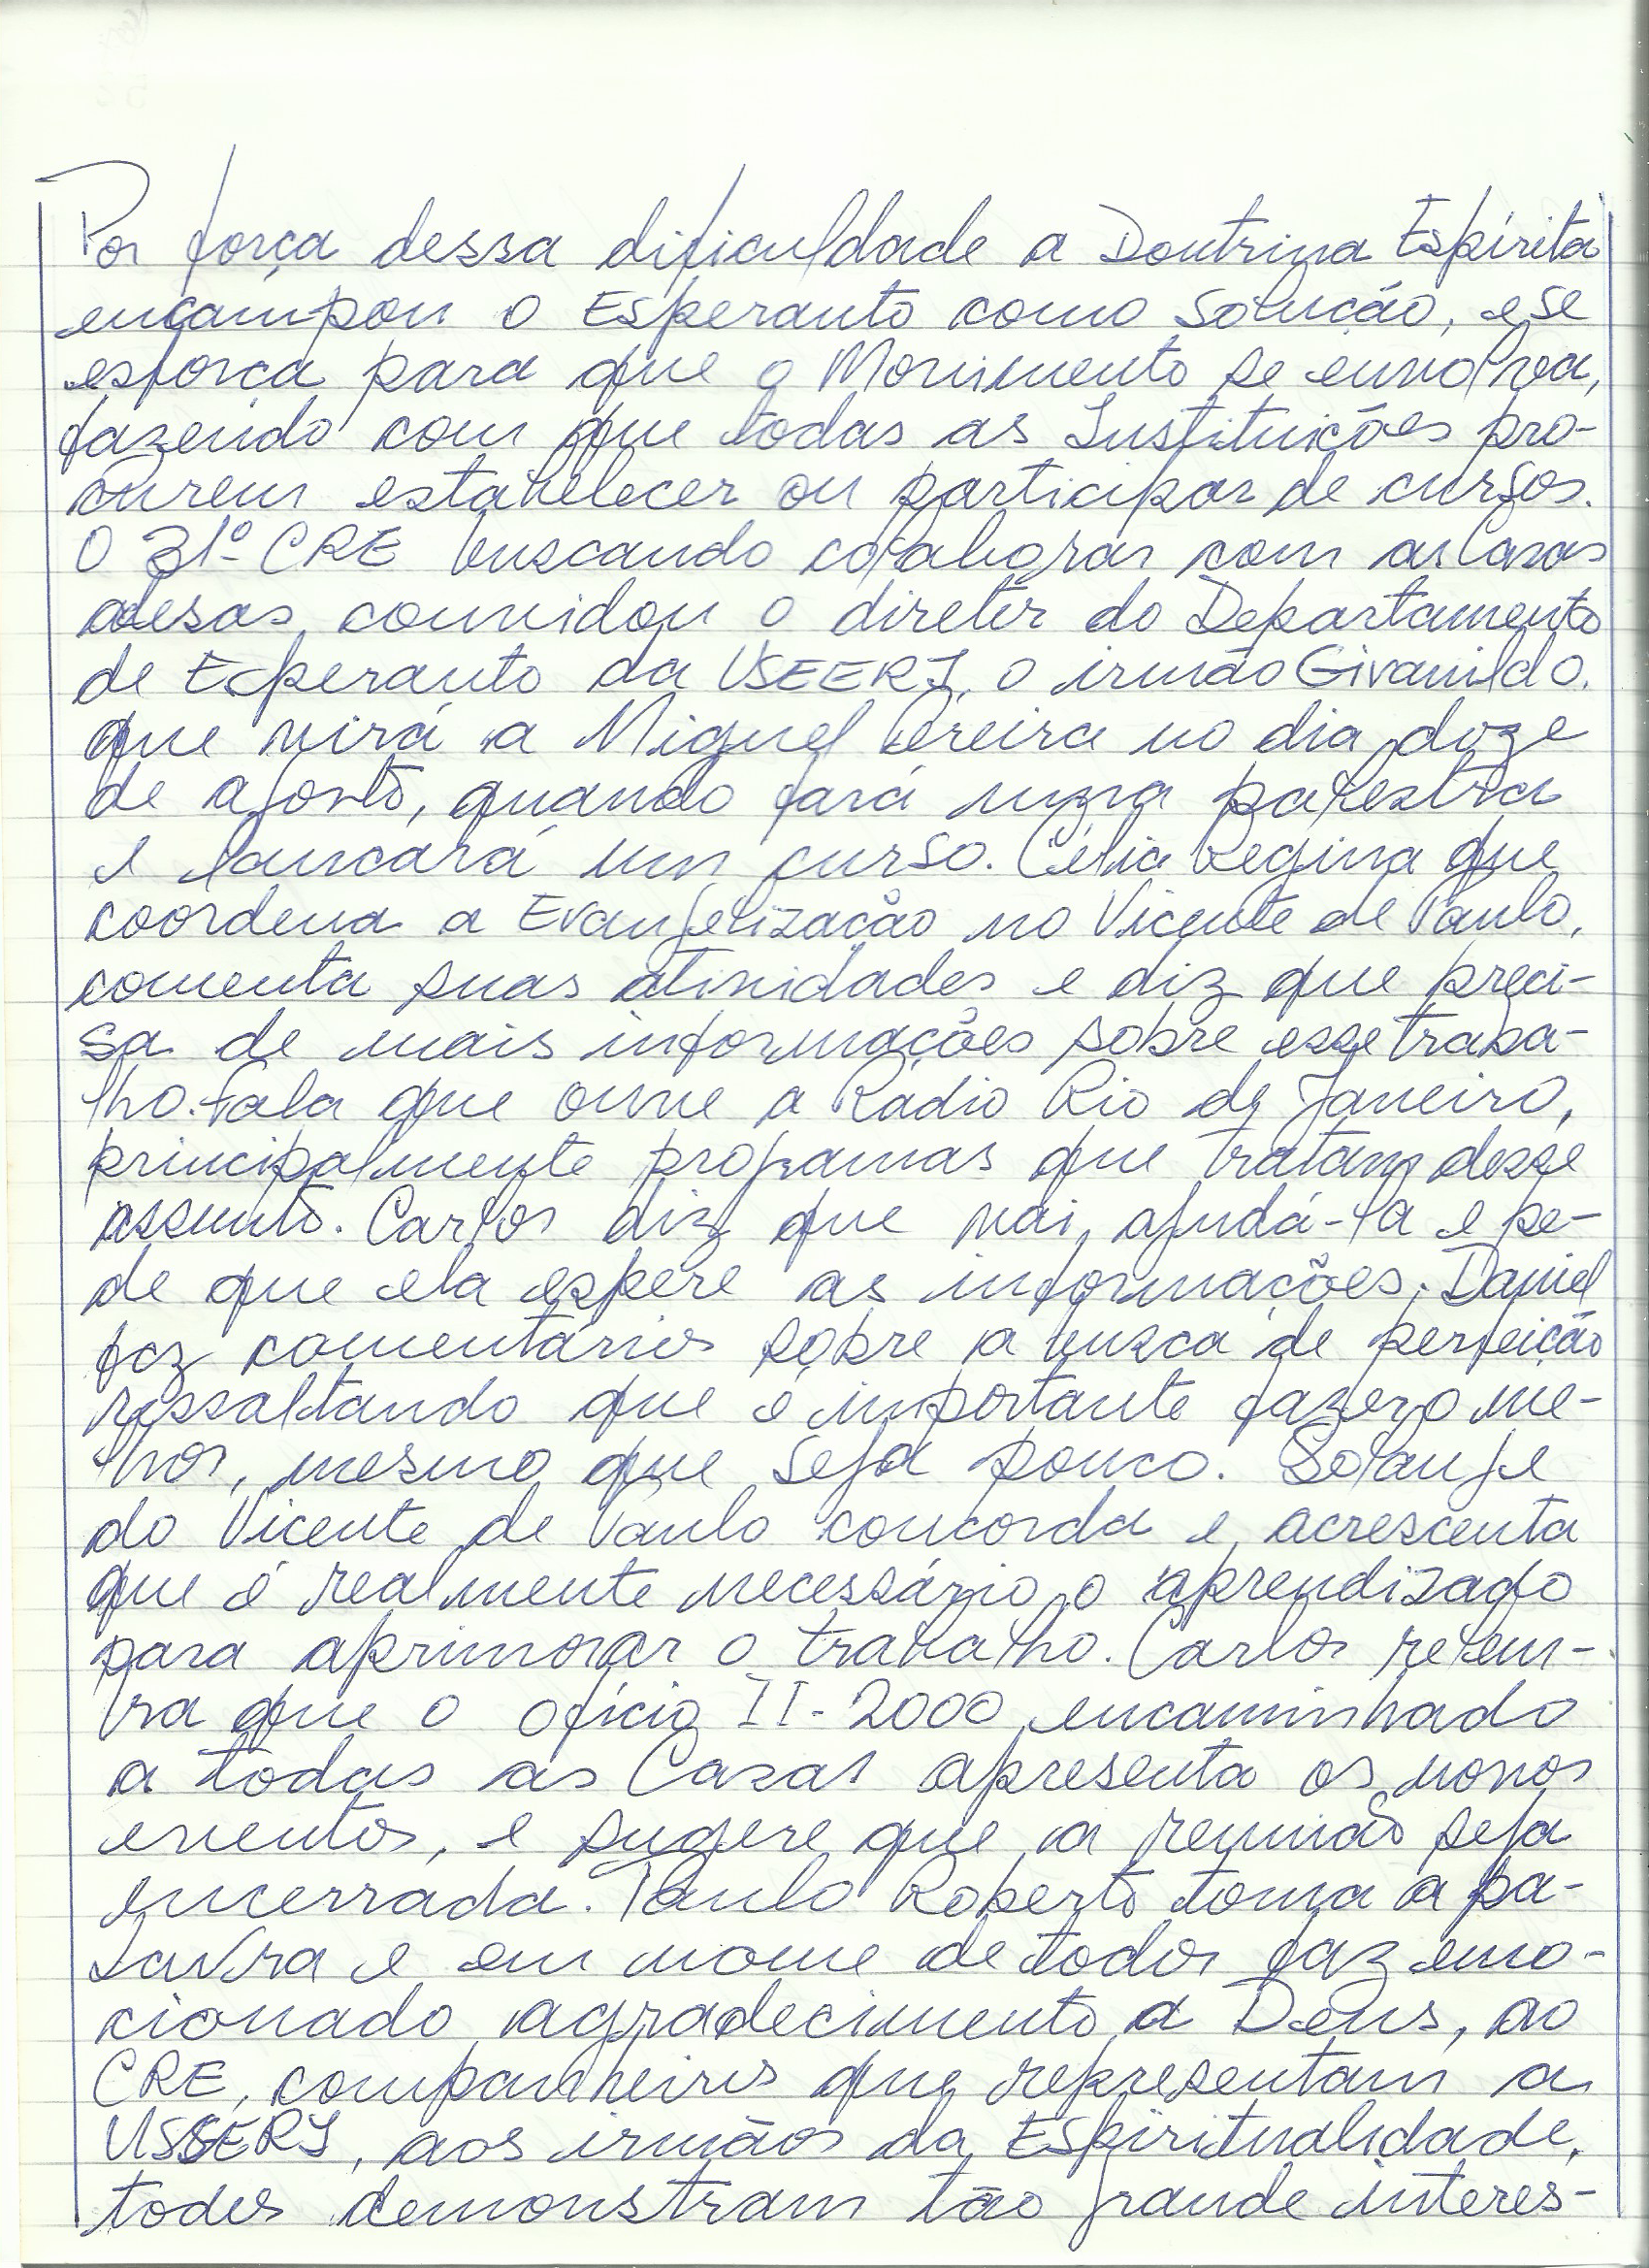 Por força dessa dificuldade a Doutrina Espírita
encampou o Esperanto como solução, e se
esforça para que o Movimento se envolva,
fazendo com que todas as Instituições pro-
curem estabelecer ou participar de cursos.
O 31º CRE buscando colaborar com as Casas
adesas, convidou o diretor do Departamento
de Esperanto da USEERJ, o irmão Givanildo,
que virá a Miguel Pereira no dia doze
de agosto, quando fará uma palestra
e lançará um curso. Célia Regina que
coordena a Evangelização no Vicente de Paulo,
comenta suas atividades e diz que preci-
sa de mais informações sobre esse traba-
lho. Fala que ouve a Rádio Rio de Janeiro,
principalmente programas que tratam desse
assunto. Carlos diz que vai ajudá-la e pe-
de que ela espere as informações. Daniel
faz comentários sobre a busca de perfeição
ressaltando que é importante fazer o me-
lhor, mesmo que seja pouco. Solange
do Vicente de Paulo concorda e acrescenta
que é realmente necessário o aprendizado
para aprimorar o trabalho. Carlos relem-
bra que o ofício II-2000 encaminhado
a todas as Casas apresenta os novos
eventos, e sugere que a reunião seja
encerrada. Paulo Roberto toma a pa-
lavra e em nome de todos faz emo-
cionado agradecimento a Deus, ao
CRE, companheiros que representam a
USEERJ, aos irmãos da Espiritualidade,
todos demonstram tão grande interes-